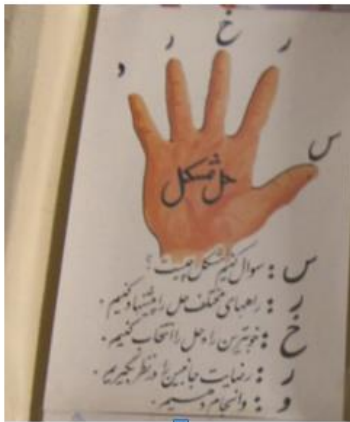 د ر خ ر
س
حل مشکل
س : سوال کنیم مشکل چیست ؟
ر : راههای مختلف حل را پیشنهاد کنیم .
خ : خوبترین راه حل را انتخاب کنیم .
ر : رضایت جانبین را در نظر بگیریم .
و : وانجام دهیم .